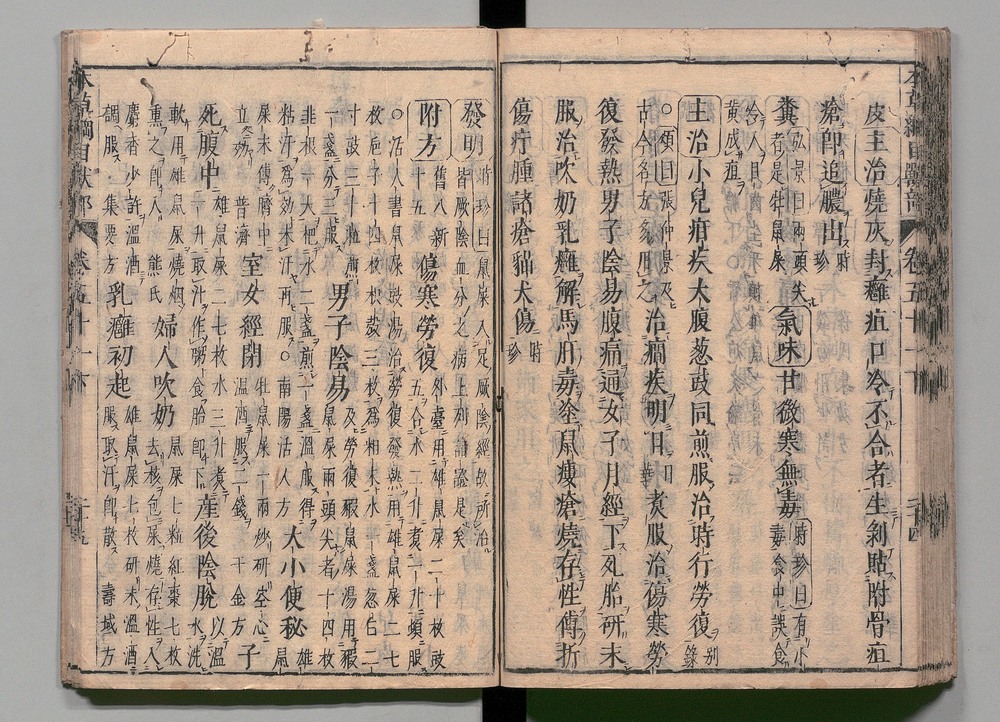 皮主治燒灰封癰疽口冷不合者生剝貼附骨疽
瘡卽追膿出時珍
糞弘景曰兩頭尖者是牡鼠屎氣味甘微寒無毒時珍曰有小毒食中誤食
令人目黃成疸
主治小兒疳疾大腹葱豉同煎服治時行勞復別錄
○頌曰張仲景及古今名方多用之治癎疾明目日華煮服治傷寒勞
復發熱男子陰易腹痛通女子月經下死胎研末
服治吹奶乳癰解馬肝毒塗鼠瘻瘡燒存性傅折
傷疔腫諸瘡貓犬傷時珍
發明時珍曰鼠屎入足厥陰經故所治皆厥陰血分之病上列諸證是矣
附方舊八新十五傷寒勞復外臺用雄鼠屎二十枚豉五合水二升煮一升頓服
○活人書鼠屎豉湯治勞復發熱用雄鼠屎二七
枚巵子十四枚枳殼三枚爲粗末水一盞葱白二
寸豉三十粒煎一盞分三服男子陰易及勞復豭鼠屎湯用豭鼠屎兩頭尖者十四枚
韭根一大把水二盞煎一盞溫服得粘汗爲効未汗再服○南陽活人方大小便秘雄鼠
屎末傅臍中立效普濟室女經閉牡鼠屎一兩炒研空心溫酒服二錢千金方子
死腹中雄鼠屎二七枚水三升煮一升取汁作粥食胎卽下產後陰脫以溫水洗
軟用雄鼠屎燒烟熏之卽入熊氏婦人吹奶鼠屎七粒紅棗七枚去核包屎燒存性入
麝香少許溫酒調服集要方乳癰初起雄鼠屎七枚研末溫酒服取汗卽散壽域方